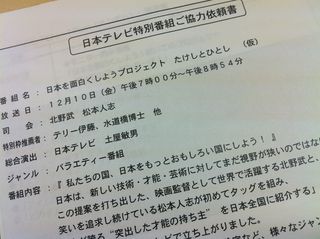 日本テレビ特別番組ご協力依頼書
番組名：日本を面白くしようプロジェクト たけしとひとし （仮）
放送日時：12月10日（金）午後7時00分～午後8時54分
司会：北野武 松本人志
特別枠推薦者：テリー伊藤、水道橋博士 他
総合演出：日本テレビ 土屋敏男
ジャンル：バラエティー番組
番組内容：『 私たちの国、日本をもっとおもしろい国にしよう！ 』
日本は、新しい技術・才能・芸術に対してまだ視野が狭いのではな
この提案を打ち出した、映画監督として世界で活躍する北野武と、
笑いを追求し続けている松本人志が初めてタッグを組み、
"突出した才能の持ち主" を日本全国に紹介する
で立ち上がりました。
など、様々なジャン